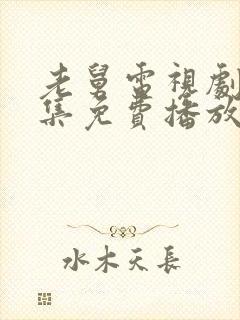 老舅電視劇
集免費播放
水木天長